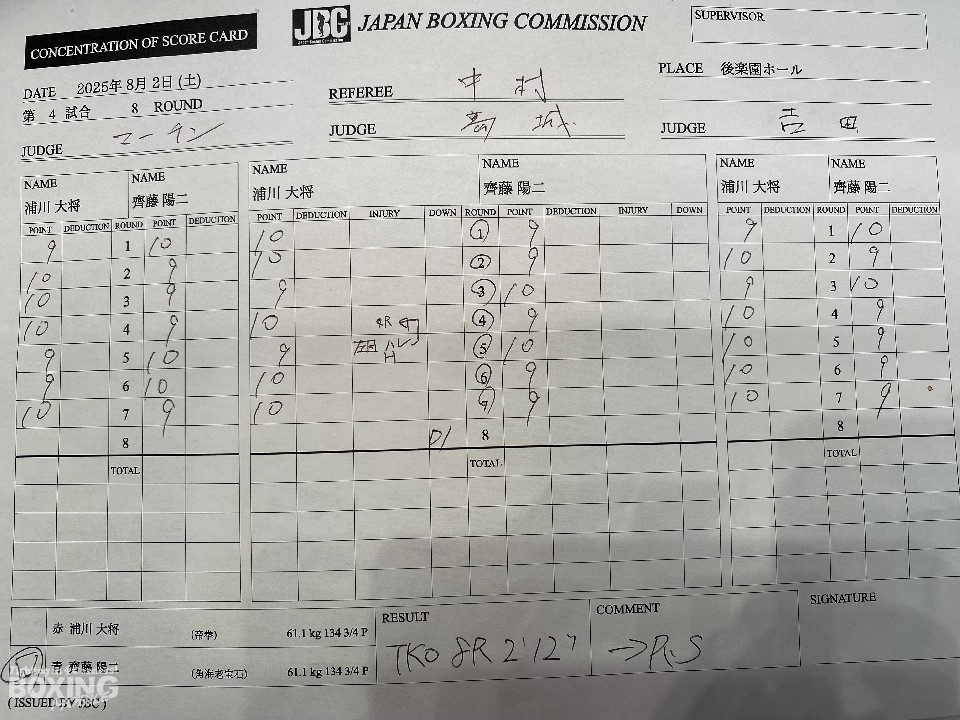 CONCENTRATION OF SCORE CARD
JBC
Japan Boxing Commission
JAPAN BOXING COMMISSION
SUPERVISOR
DATE 2025年 8月 2日 (土)
第 4 試合 8 ROUND
REFEREE 中村
PLACE 後楽園ホール
JUDGE マーチン
JUDGE 高城
JUDGE 吉田
NAME 浦川 大将 NAME 齊藤 陽二
NAME 浦川 大将 NAME 齊藤 陽二
NAME 浦川 大将 NAME 齊藤 陽二
POINT DEDUCTION ROUND POINT DEDUCTION
POINT DEDUCTION INJURY DOWN ROUND POINT DEDUCTION INJURY DOWN
POINT DEDUCTION ROUND POINT DEDUCTION
9 1 10 10 1 9 9 1 10
10 2 9 10 2 9 10 2 9
10 3 9 9 3 10 9 3 10
10 4 9 10 4 9 10 4 9
9 5 10 9 5 10 10 5 9
9 6 10 10 6 9 10 6 9
10 7 9 10 7 9 10 7 9
8 D1 8 8
TOTAL TOTAL TOTAL
赤 浦川 大将 (帝拳) 61.1 kg 134 3/4 P
青 齊藤 陽二 (角海老宝石) 61.1 kg 134 3/4 P
RESULT
TKO 8R 2'12"
COMMENT
→R.S
SIGNATURE
BOXING
( ISSUED BY JBC )